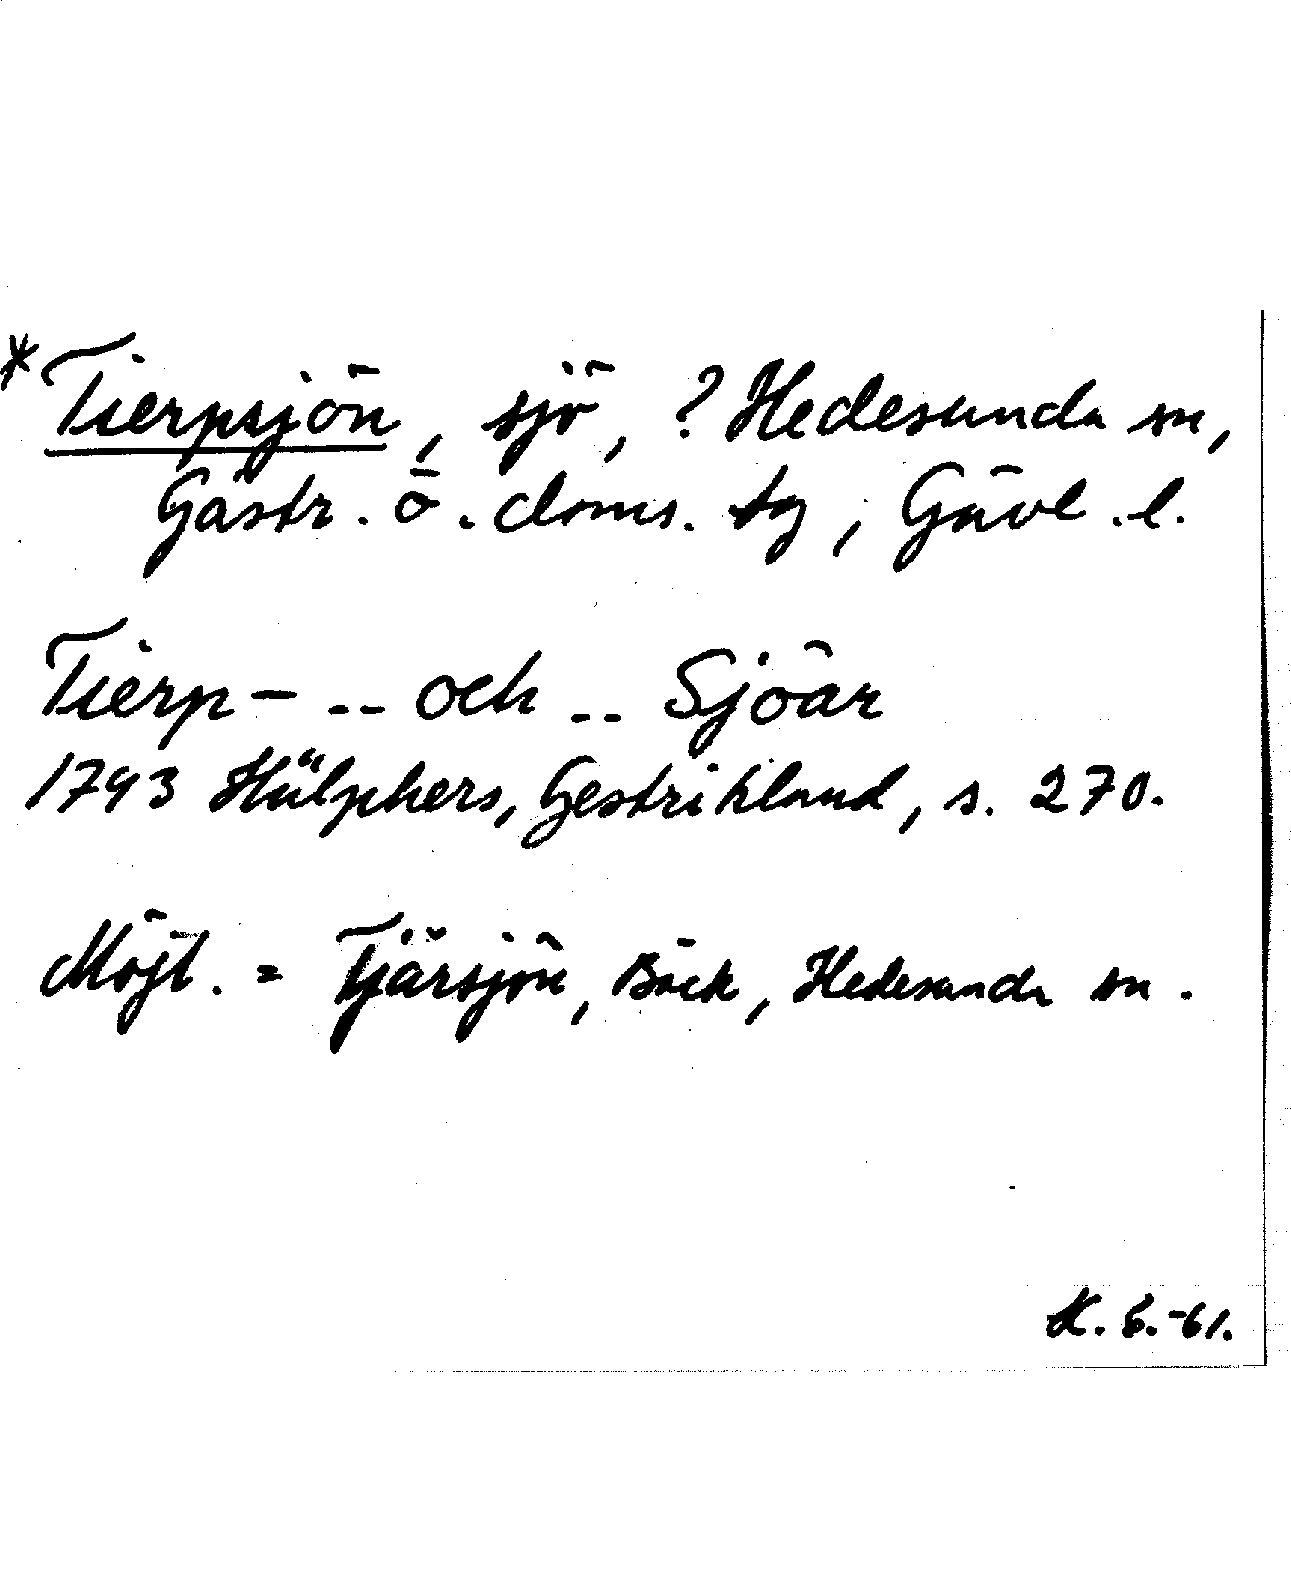 *Tierpsjön, sjö, ? Hedesunda sn,
Gästr. ö. doms. tg, Gävl. l.
Tierp- -- och -- Sjöar
1793 Hülphers, Gestrikland, s. 270.
Möjl. = Tjärsjön, Bäck, Hedesunda sn.
K. G. -61.